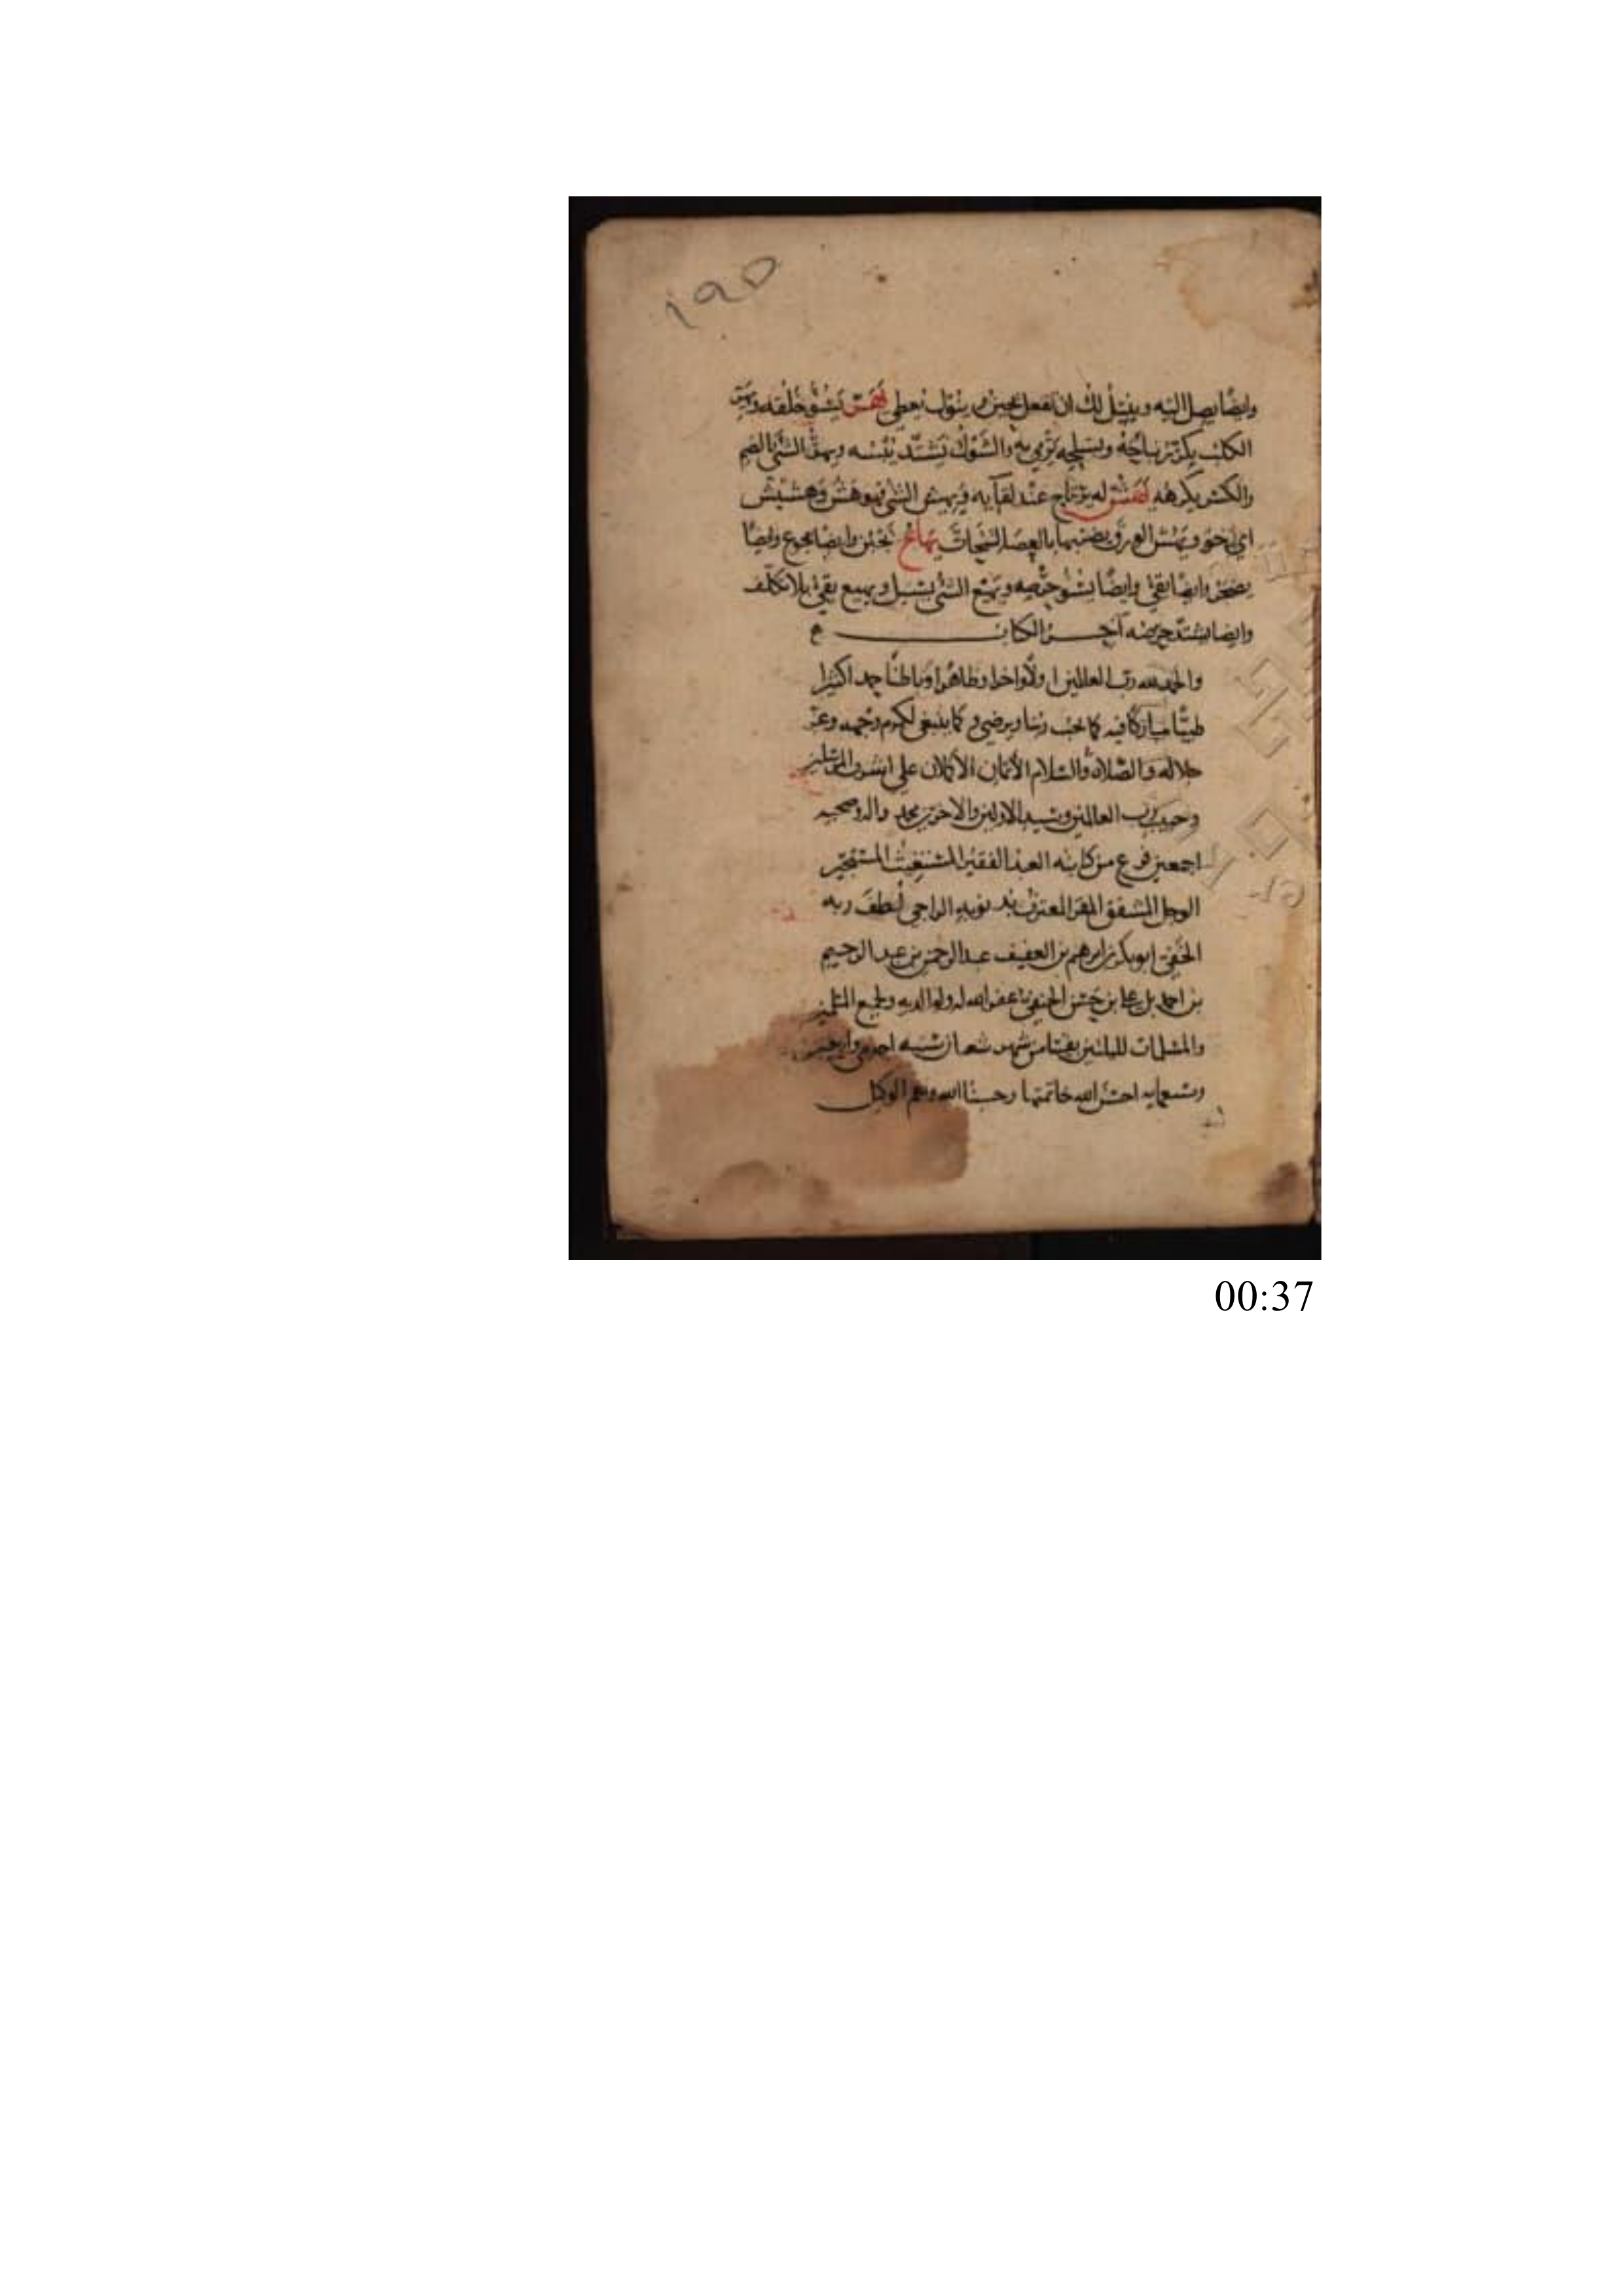 ١٩٥
وايضا يصل اليه وينيل لك ان تفعل يحين وينول يعطي يسوء خلقه ويهر
الكلب يكرر نباحه وبسلحه يرمي به والشوك يشتد يبسه ويهر الشي بالضم
والكسر يكرهه له يرتاح عند لقايه ويهش الشي فهو هش وهشيش
اي رخو ويهش الورق يضربها بالعصا يهاع يجبن وايضا يجوع وايضا
يضجر وايضا يقي وايضا يسوء حرصه ويهيع الشي يسيل ويهيع يقي بلا تكلف
وايضا يشتد حرصه آخر الكتاب
والحمد لله رب العالمين اولا واخرا وظاهرا وباطنا حمدا كثيرا
طيبا مباركا فيه كما يحب ربنا ويرضى وكما ينبغي لكرم وجهه وعز
جلاله والصلاة والسلام الأتمان الأكملان على اشرف المرسلين
وحبيب رب العالمين وسيد الاولين والاخرين محمد واله وصحبه
اجمعين فرغ من كتابته العبد الفقير المستغيث المستجير
الوجل المشفق المقر المعترف بذنوبه الراجي لطف ربه
الخفي ابو بكر بن ابرهيم بن العفيف عبد الرحمن بن عبد الرحيم
بن احمد بن علي بن حسن الحنفي عفا الله له ولوالديه ولجميع المسلمين
والمسلمات لليلتين بقيتا من شهر شعبان سنه احدى واربعين
وسبعمايه احسن الله خاتمتها وحسبنا الله ونعم الوكيل
00:37